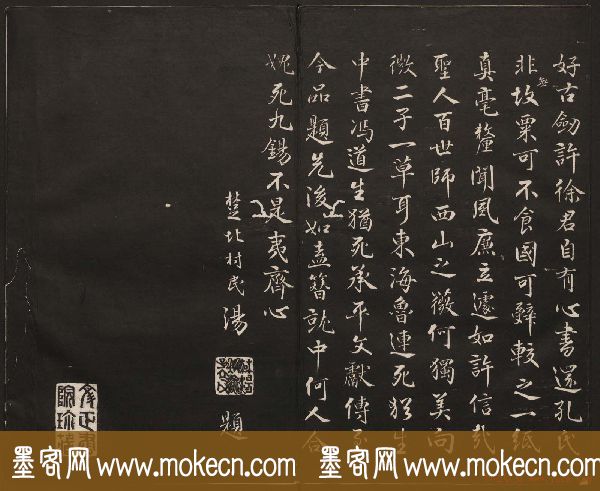 好古劒許徐君自有心書還孔氏
非故粟可不食國可辭較之一紙
真毫釐聞風廉立遽如許信哉
聖人百世師西山之薇何獨美向
微二子一草耳東海魯連死猶生
中書馮道生猶死承平文獻傳至
今品題先後如盍簪就中何人合
媿死九錫不是夷齊心
楚北村民湯
題
墨客网 www.mokecn.com 墨客网 www.mokecn.com